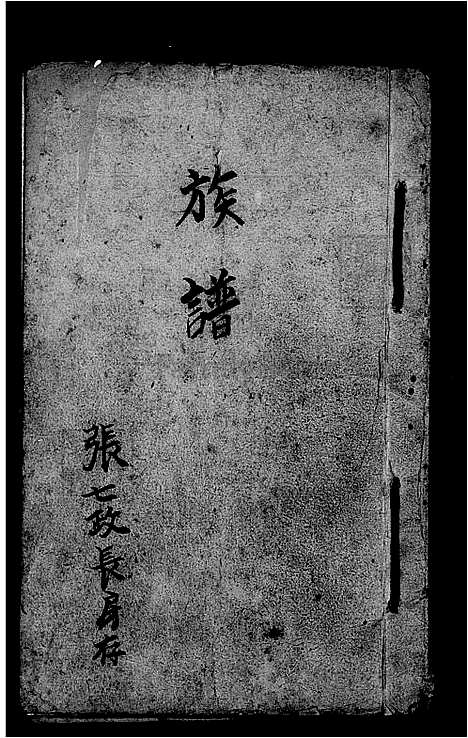 族譜
張七政長房存